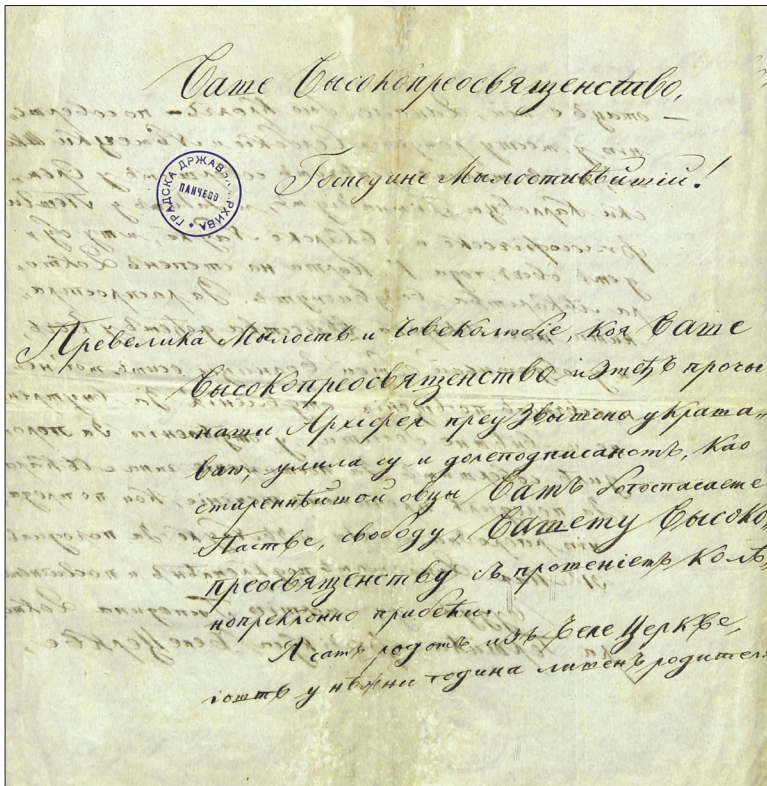 Ваше Высокопреосвященство,
Господине Мылостивѣйшій!
ГРАДСКА ДРЖАВНА АРХИВА
ПАНЧЕВО
Превелика Мылость и Човеколюбіе, коя Ваше
Высокопреосвященство измеђъ прочы
нати Архіереа преузвышено украша„
ваю, улила су и долеподписаномъ, као
смиреннѣйшой овцы Вамъ богоспасаеме
Пастве, свободу Вашему Высоко„
преосвященству съ прошеніемъ колѣ„
нопреклонно прибећи.
Я самъ родомъ изъ Беле Церкве,
іоштъ у нѣжни година лишенъ родителя